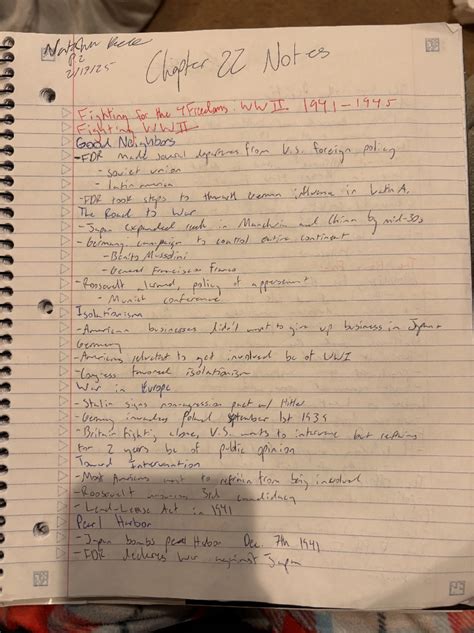 P2
2/17/25
Chapter 22 Notes
Fighting for the 4 Freedoms: WWII 1941-1945
Fighting WWII
Good Neighbors
-FDR made several departures from U.S. foreign policy
- Soviet union
- Latin america
-FDR took steps to German influence in Latin A.
The Road to War
-Japan expanded reach in Manchuria and China by mid-30s
-Germany campaign to control entire continent
- Benito Mussolini
- General Francisco Franco
-Roosevelt policy of appeasement
- Munich conference
Isolationism
-American businesses didn't want to give up business in Japan +
Germany
-Americans reluctant to get involved bc of WWI
-Congress favored isolationism
War in Europe
-Stalin signs non-agression pact w/ Hitler
-Germany invades Poland September 1st 1939
-Britain fighting alone, U.S. wants to intervene but refrains
for 2 years bc of public opinion
Toward Intervention
-Most Americans want to refrain from being involved
-Roosevelt 3rd candidacy
- Lend-Lease Act in 1941
Pearl Harbor
-Japan bombs pearl Harbor Dec. 7th 1941
-FDR declares war against Japan